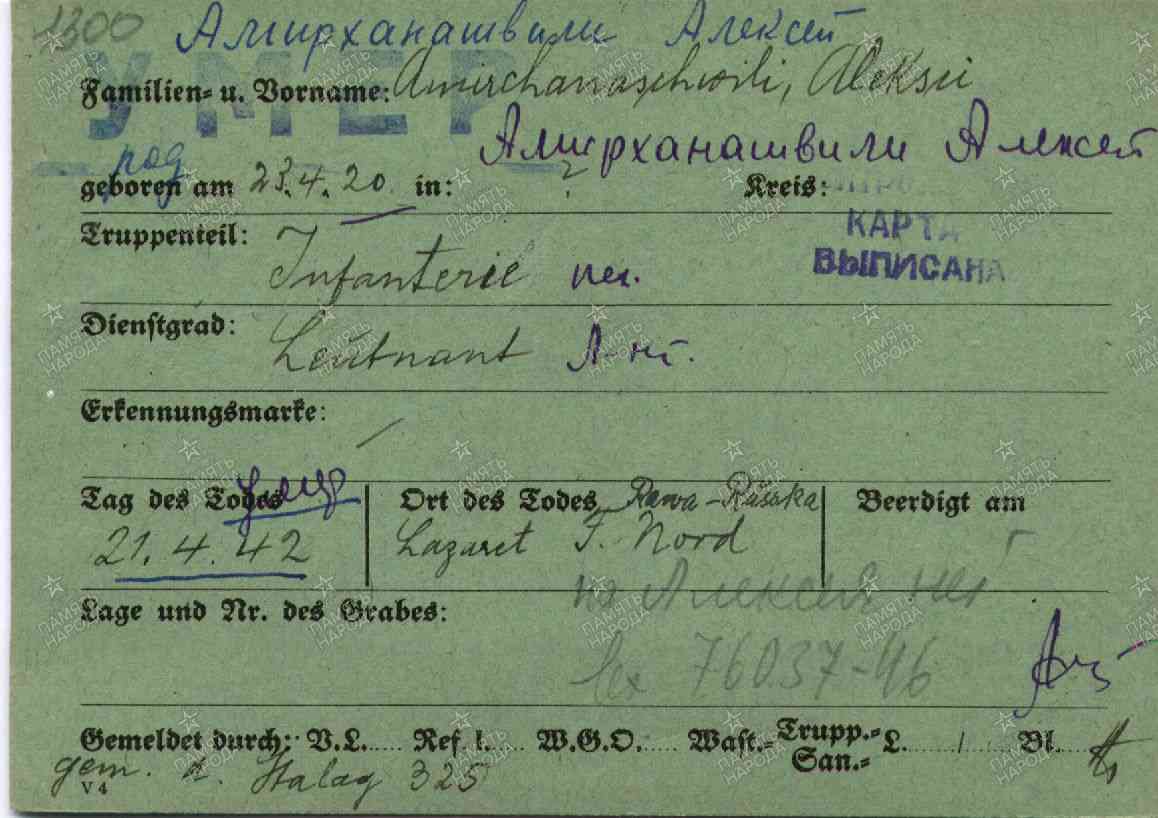 1300 Амирханашвили Алексей
УМЕР
Familien= u. Vorname: Amirchanaschwili, Aleksei
Амирханашвили Алексей
род
geboren am 23.4.20 in: ? Kreis:
КАРТА
ВЫПИСАНА
Truppenteil: Infanterie пех.
Dienstgrad: Leutnant Л-нт.
Erkennungsmarke: /
умер
Tag des Todes Ort des Todes Rawa-Ruska Beerdigt am
21.4.42 Lazaret T. Nord
Алексей нет
Lage und Nr. des Grabes:
вх 76037-46
Gemeldet durch: V.L..... Ref l..... W.G.O..... Wast.= Trupp.= San.= L......./... Bl....
gem. d. Stalag 325
V 4
ПАМЯТЬ НАРОДА